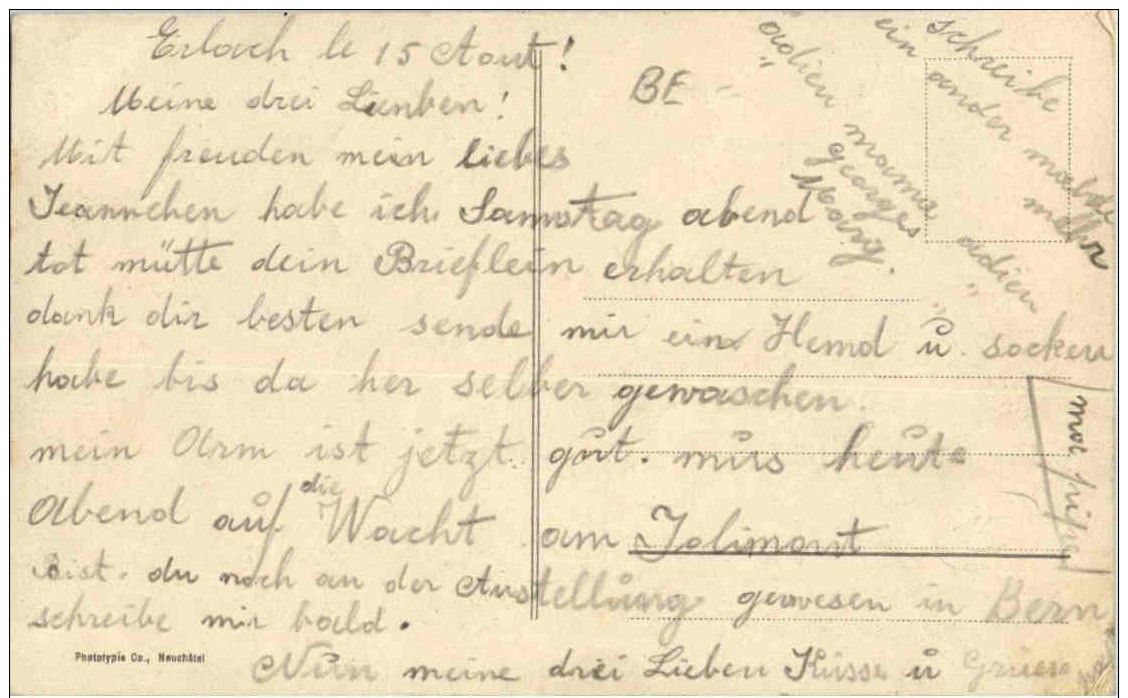 Erlach le 15 Aout!
Meine drei Lienben!
Mit freuden mein liebes
Jeannchen habe ich Samstag abend
tot mütte dein Brieflein erhalten
dank dir besten sende mir ein Hemd u. socken
habe bis da her selber gewaschen.
mein Arm ist jetzt gut. mus heute
Abend auf die Wacht am Jolimont
bist du noch an der Ausstellung gewesen in Bern
schreibe mir bald.
Nun meine drei Lieben Küsse u
BE
schreibe
ein ander
mehr
adieu mama adieu
georges
Phototypie Co., Neuchâtel